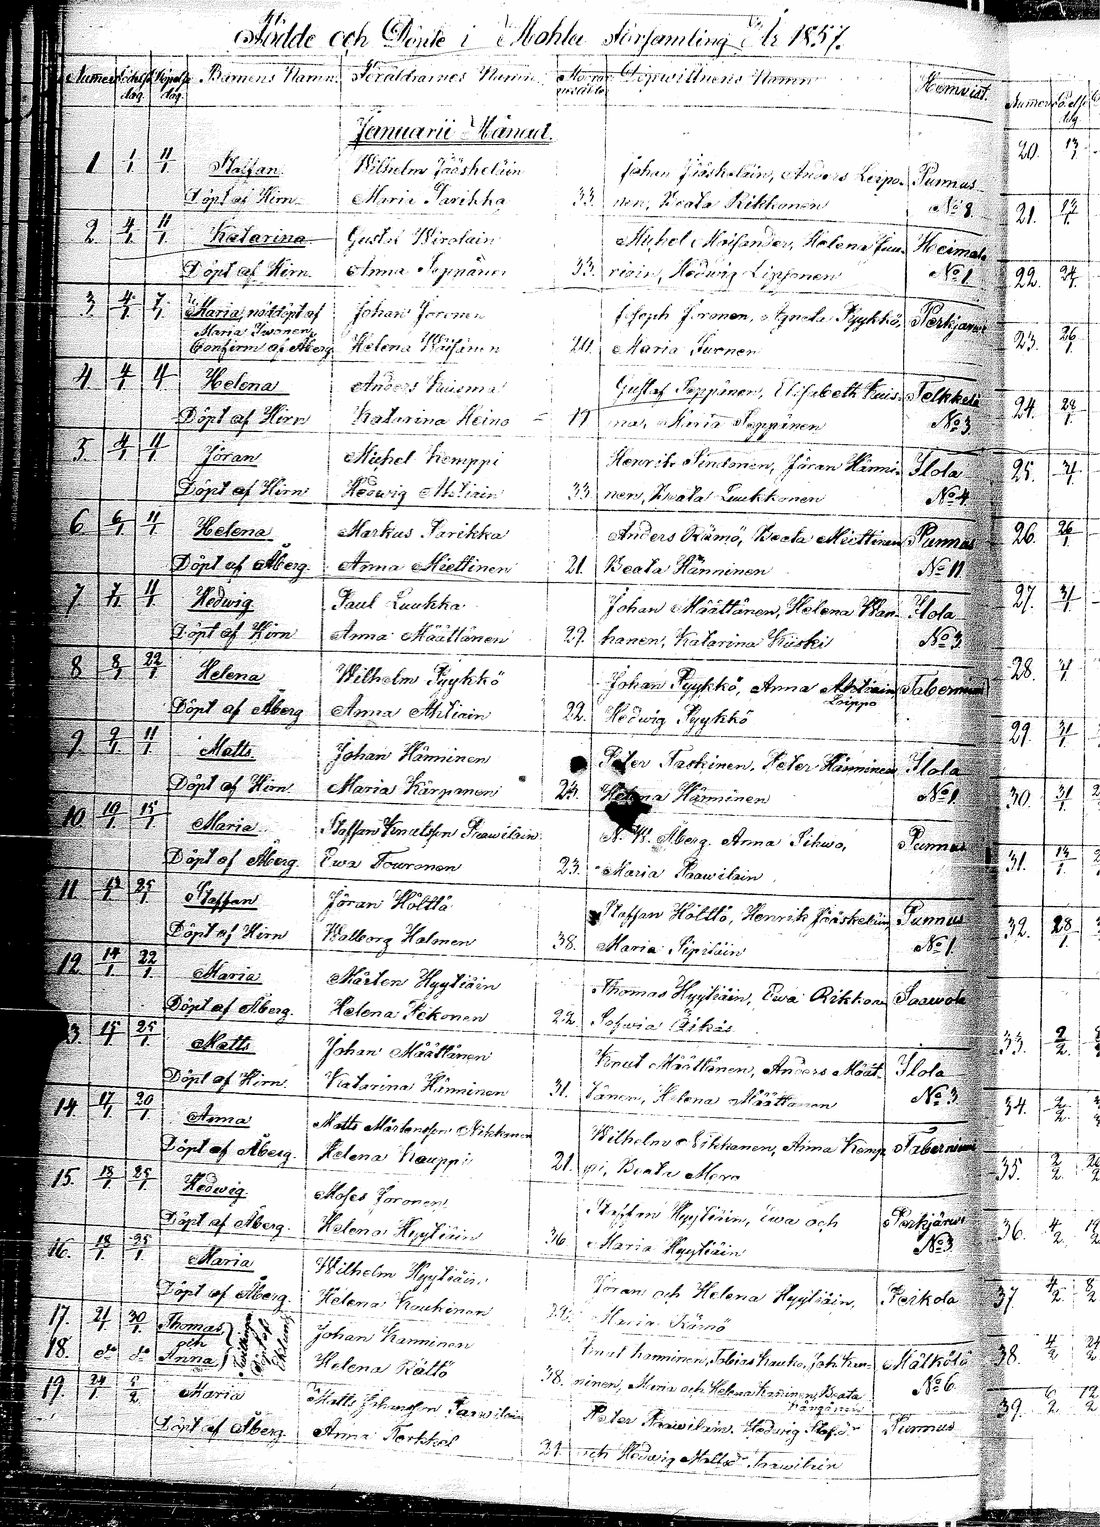 Födde och Döpte i Mohla Församling År 1857.
Numer Födelse dag. Döpelse dag. Barnens Namn. Föräldrarnes Namn Moderns ålder Dopvittnens Namn Hemvist.
Januarii Månad.
1 1/1 11/1 Staffan Wilhelm Jääskeläin Johan Jääskeläin, Anders Leppo- Punnus
Döpt af Hirn. Maria Parikka 33. nen, Beata Rikkonen No 8.
2 4/1 11/1 Katarina Gustaf Wirolain Michel Heimala
Döpt af Hirn. Anna Seppänen 33. Hedwig Lipponen No 1.
3 4/1 7/1 Maria, nöddöpt af Johan Joronen Joseph Joronen, Agneta Pyykkö, Perkjärwi
Maria Iwonen,
Confirm. af Åberg. Helena Wäisänen 20. Maria Iwonen
4 4/1 11/1 Helena Anders Kuisma Gustaf Seppänen, Elisabeth Kuis- Telkkälä
Döpt af Hirn Katarina Heino 19 ma, Maria Seppänen No 3.
5. 4/1 11/1 Jöran Michel Kemppi Henrik Sintonen, Jöran Hänni- Ilola
Döpt af Hirn Hedwig Ahtiain 33. nen, Beata Luukkonen No 4.
6 6/1 11/1 Helena Markus Parikka Anders Rämö, Beata Miettinen Punnus
Döpt af Åberg. Anna Miettinen 21. Beata Hänninen No 11.
7 7/1 11/1 Hedwig Paul Luukka Johan Määttänen, Helena Wan- Ilola
Döpt af Hirn Anna Määttänen 29. hanen, Katarina Kiiski No 3.
8 8/1 22/1 Helena Wilhelm Pyykkö Johan Pyykkö, Anna Ahtiain Tabernium
Leippo
Döpt af Åberg Anna Ahtiain 22. Hedwig Pyykkö
9 9/1 11/1 Matts. Johan Hänninen Peter Taskinen, Peter Hänninen Ilola
Döpt af Hirn. Maria Kärpänen 24. Helena Hänninen No 1.
10 10/1 15/1 Maria Staffan Knutsson Paawilain. N. W. Åberg. Anna Sihwo, Punnus
Döpt af Åberg. Ewa Touronen 23. Maria Paawilain
11. 13/1 25/1 Staffan Jöran Hölttö Staffan Hölttö, Henrik Jääskeläin, Punnus
Döpt af Hirn Walborg Halmen 38. Maria Sipiläin No 1.
12. 14/1 22/1 Maria Mårten Hyytiäin Thomas Hyytiäin, Ewa Rikkon Paawola
Döpt af Åberg. Helena Pekonen 22. Sofwia Äikäs
13. 15/1 25/1 Matts Johan Määttänen Knut Määttänen, Anders Määt- Ilola
Döpt af Hirn. Katarina Hänninen 31. tänen, Helena Määttänen No 3.
14. 17/1 20/1 Anna Matts Mårtensson Nikkanen Wilhelm Nikkanen, Anna Kemp- Tabernium
Döpt af Åberg. Helena Kauppi 21. pi, Beata Mora
15. 18/1 25/1 Hedwig. Moses Joronen, Staffan Hyytiäin, Ewa och Perkjärwi
Döpt af Åberg. Helena Hyytiäin 36 Maria Hyytiäin No 3.
16. 18/1 25/1 Maria Wilhelm Hyytiäin Jöran och Helena Hyytiäin, Peikola
Döpt af Åberg. Helena Kouhinen 29. Maria Rämö
17. 21/1 30/1 Thomas Tvillingar Johan Kanninen Knut Kanninen, Tobias Kauko, Joh. Kan- Mälkölä
18. do do och Anna Döpt af Helena Rättö 38. ninen, Maria och Helena Kanninen, Beata No 6.
19. 24/1 5/2 Maria Matts Johansson Paawilain Peter Paawilain, Hedwig Staf.dr Punnus
Döpt af Åberg. Anna Terkkel 21. och Hedwig Matts.dr Paawilain
Numer
20. 13/1
21.
22. 24/1
23. 26/1
24. 28/1
25.
26. 26/1
27. 31/1
28.
29. 31/1
30. 31/1
31. 13/1
32. 28/1
33. 2/2
34. 2/2
35. 2/2
36. 4/2
37. 4/2
38. 4/2
39. 6/2